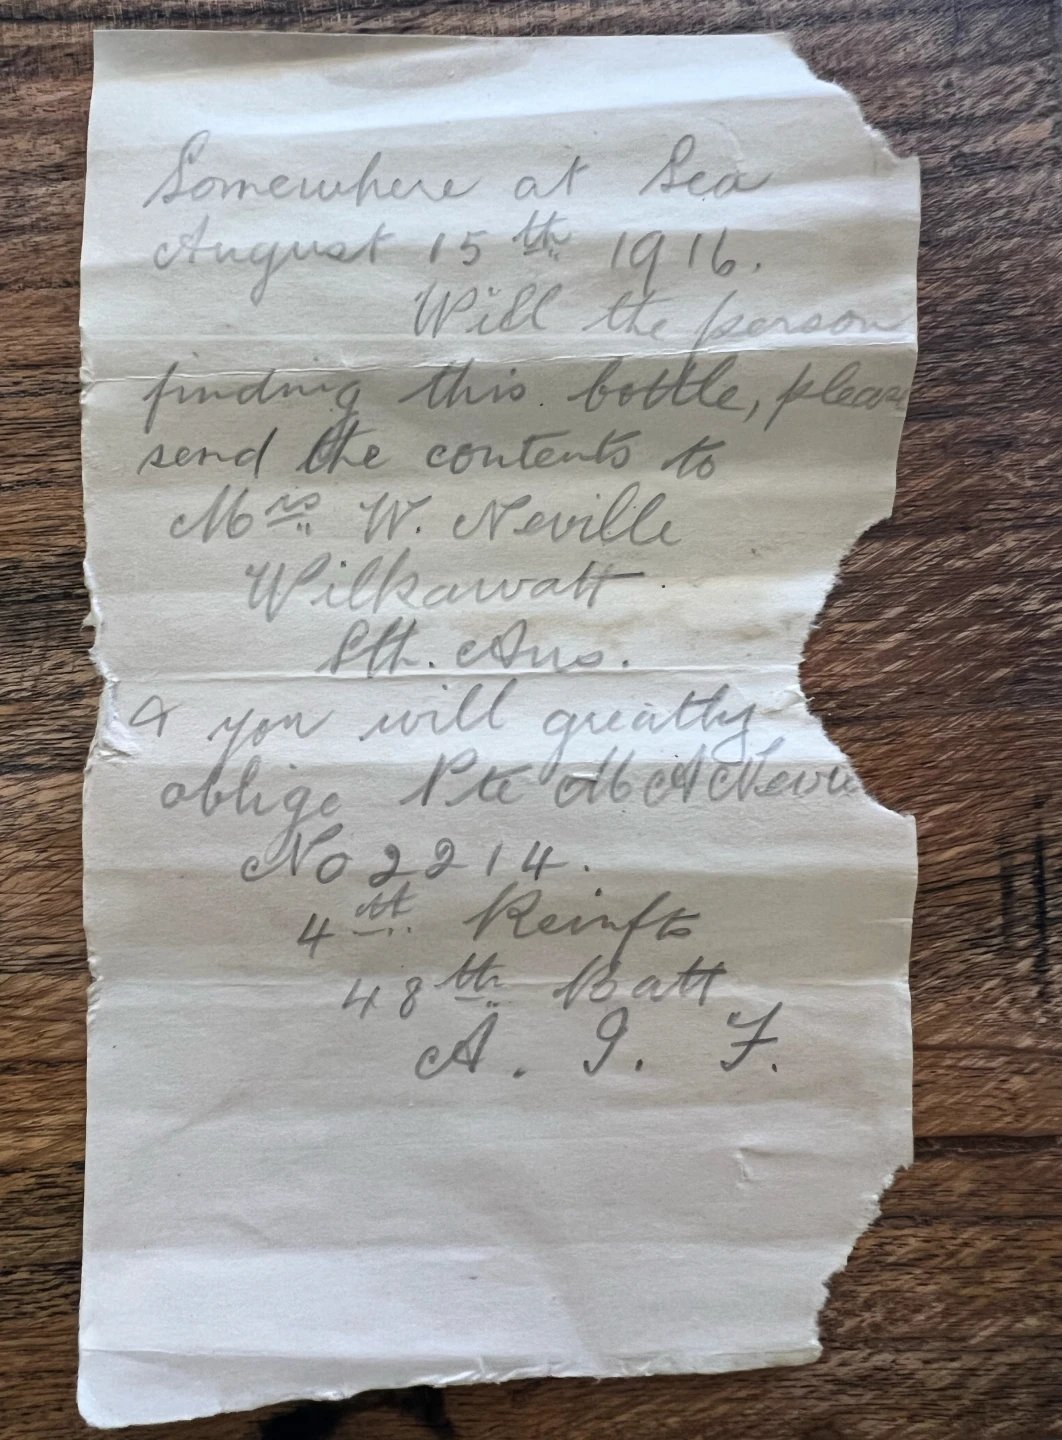 Somewhere at Sea
August 15th 1916.
Will the person
finding this bottle, pleas
send the contents to
Mrs W. Neville
Wilkawatt
Sth. Aus.
& you will greatly
oblige Pte M A Nevi
No 2214.
4th Reinfts
48th Batt
A. I. F.